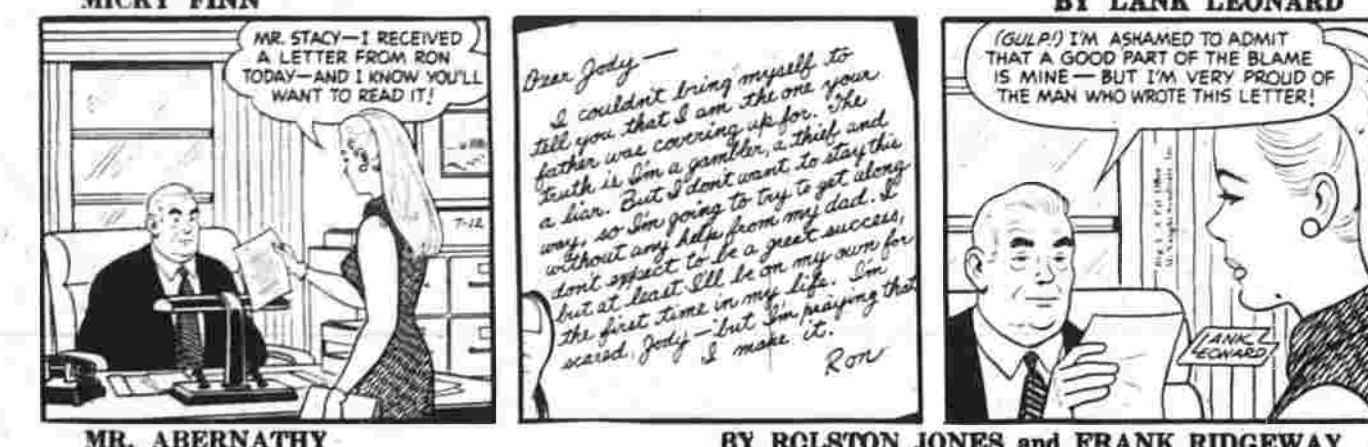 MICKY FINN
BY LANK LEONARD
MR. STACY—I RECEIVED
A LETTER FROM RON
TODAY—AND I KNOW YOU'LL
WANT TO READ IT!
7-12
Dear Jody —
I couldn't bring myself to
tell you that I am the one your
father was covering up for. The
truth is I'm a gambler, a thief and
a liar. But I don't want to stay this
way, so I'm going to try to get along
without any help from my dad. I
don't expect to be a great success,
but at least I'll be on my own for
the first time in my life. I'm
scared, Jody — but I'm praying that
I make it.
Ron
(GULP!) I'M ASHAMED TO ADMIT
THAT A GOOD PART OF THE BLAME
IS MINE — BUT I'M VERY PROUD OF
THE MAN WHO WROTE THIS LETTER!
LANK
LEONARD
MR. ABERNATHY
BY ROLSTON JONES and FRANK RIDGEWAY